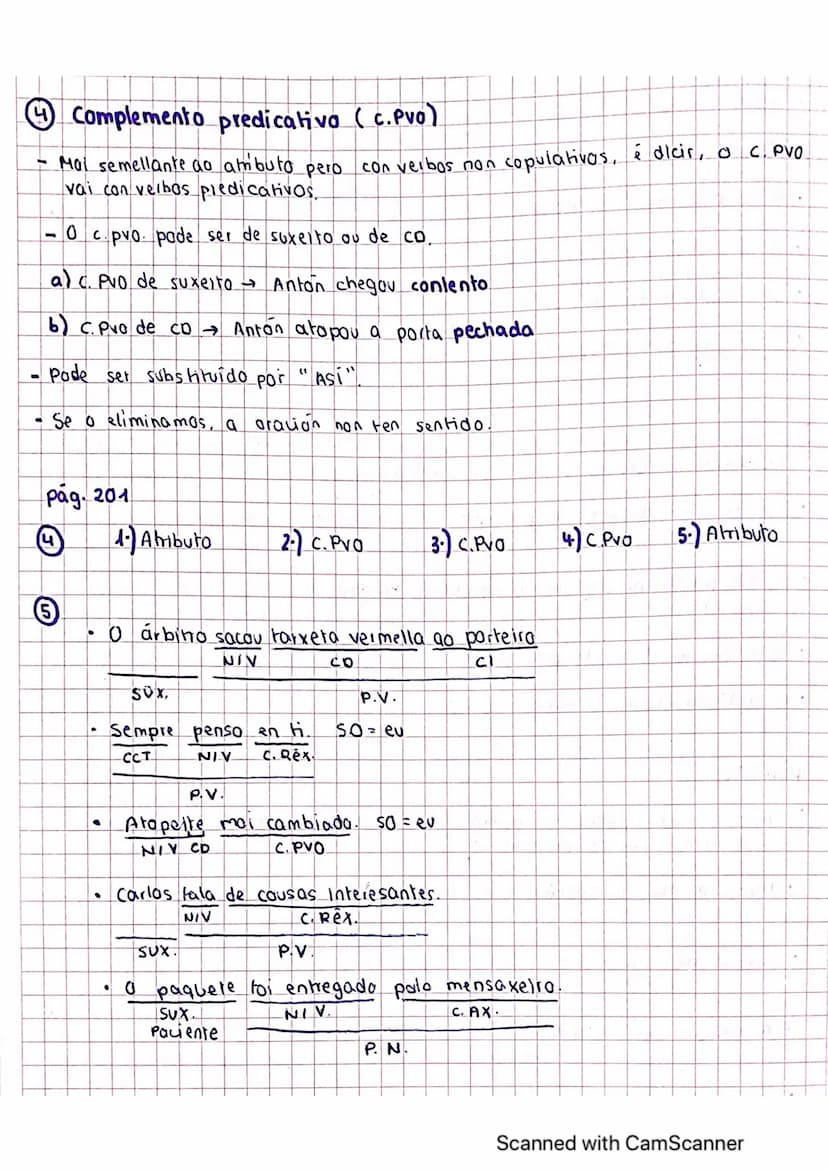 ④ Complemento predicativo (C.PVO)
- Moi semellante ao atributo pero con verbos non copulativos, é dicir, o C. PVO
vai con verbos predicativos.
- O C.PVO. pode ser de suxeito ou de CD.
a) C. PVO de suxeito → Antón chegou contento
b) C.PVO de CD → Antón atopou a porta pechada
- Pode ser substituído por "ASÍ".
- Se o eliminamos, a oración non ten sentido.
pág. 201
④ 1.) Atributo 2.) C.PVO 3.) C.PVO 4.) C.PVO 5.) Atributo
⑤
• O árbitro sacou tarxeta vermella ao porteiro
NIV CD CI
SUX. P.V.
• Sempre penso en ti. SO = eu
CCT NIV C. Réx.
P.V.
• Atopeite moi cambiado. SO = eu
NIV CD C.PVO
• Carlos fala de cousas interesantes.
NIV C. Réx.
SUX. P.V.
• O paquete foi entregado polo mensaxeiro.
SUX. NIV. C. AX.
Paciente
P. N.
Scanned with CamScanner